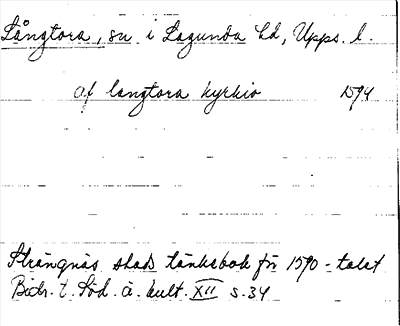 Långtora, sn i Lagunda hd, Upps. l.
af langtora kyrkio 1594
Strängnäs stads tänkebok för 1590-talet
Bidr. t. Söd. ä. kult. XII s. 34